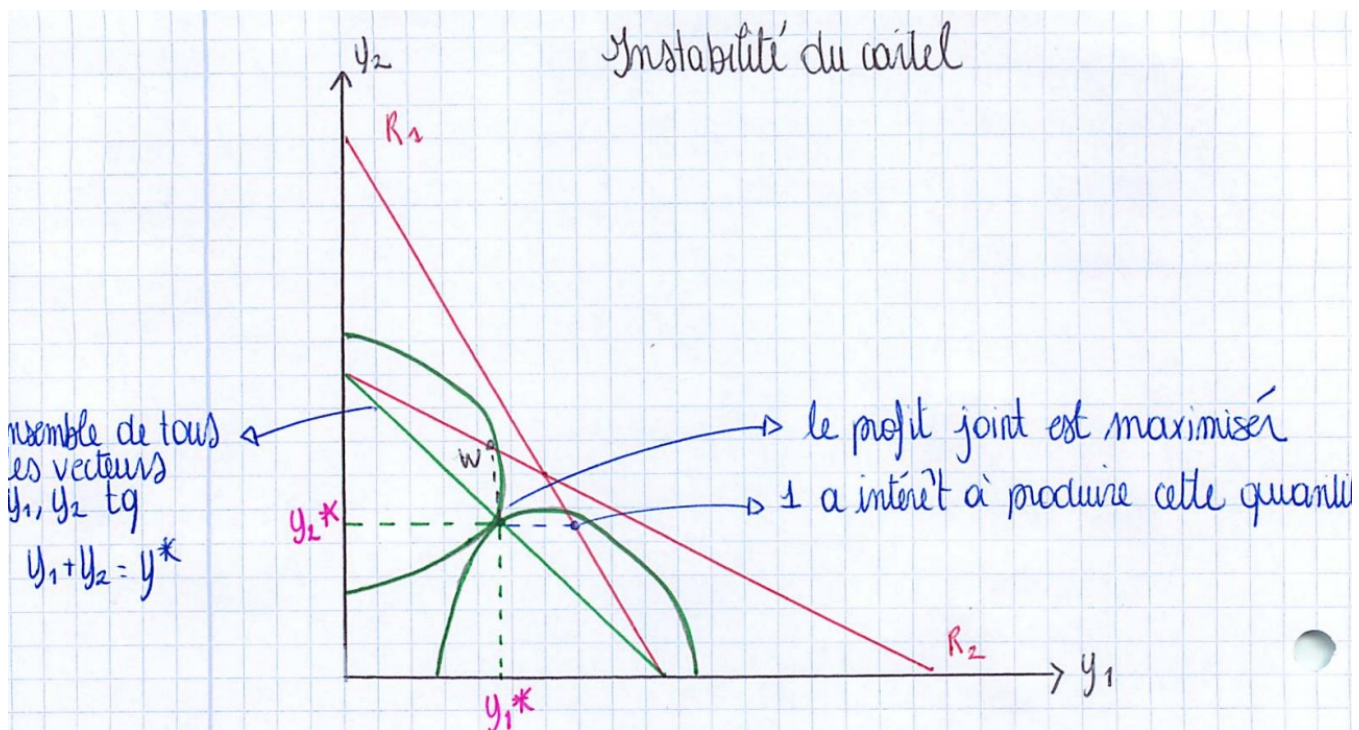 Instabilité du cartel
y₂
R₁
nsemble de tous
es vecteurs
y₁, y₂ tq
y₁+y₂ = y*
le profit joint est maximisér
W
1 a intérêt à produire cette quanti
y₂*
R₂
y₁
y₁*